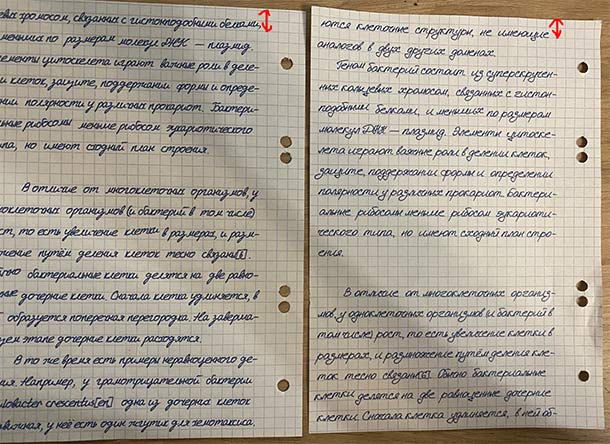 евых хромосом, связанных с гистоноподобными белками,
меньших по размерам молекул ДНК — плазмид.
лементы цитоскелета играют важные роли в деле-
и клеток, защите, поддержании формы и опреде-
нии полярности у различных прокариот. Бактери-
ьные рибосомы меньше рибосом эукариотического
ипа, но имеют сходный план строения.
В отличие от многоклеточных организмов, у
ноклеточных организмов (и бактерий в том числе)
ст, то есть увеличение клетки в размерах, и разм-
жение путём деления клеток тесно связаны[5].
бычно бактериальные клетки делятся на две равно-
ные дочерние клетки. Сначала клетка удлиняется, в
образуется поперечная перегородка. На заверша-
щем этапе дочерние клетки расходятся.
В то же время есть примеры неравноценного де-
ния. Например, у грамотрицательной бактерии
lobacter crescentus[en] одна из дочерних клеток
движная, у неё есть один жгутик для хемотаксиса.
ются клеточные структуры, не имеющие
аналогов в двух других доменах.
Геном бактерий состоит из суперскручен-
ных кольцевых хромосом, связанных с гистон-
подобными белками, и меньших по размерам
молекул ДНК — плазмид. Элементы цитоске-
лета играют важные роли в делении клеток,
защите, поддержании формы и определении
полярности у различных прокариот. Бактери-
альные рибосомы меньше рибосом эукариоти-
ческого типа, но имеют сходный план стро-
ения.
В отличие от многоклеточных организ-
мов, у одноклеточных организмов (и бактерий в
том числе) рост, то есть увеличение клетки в
размерах, и размножение путём деления кле-
ток тесно связаны[5]. Обычно бактериальные
клетки делятся на две равноценные дочерние
клетки. Сначала клетка удлиняется, в ней об-